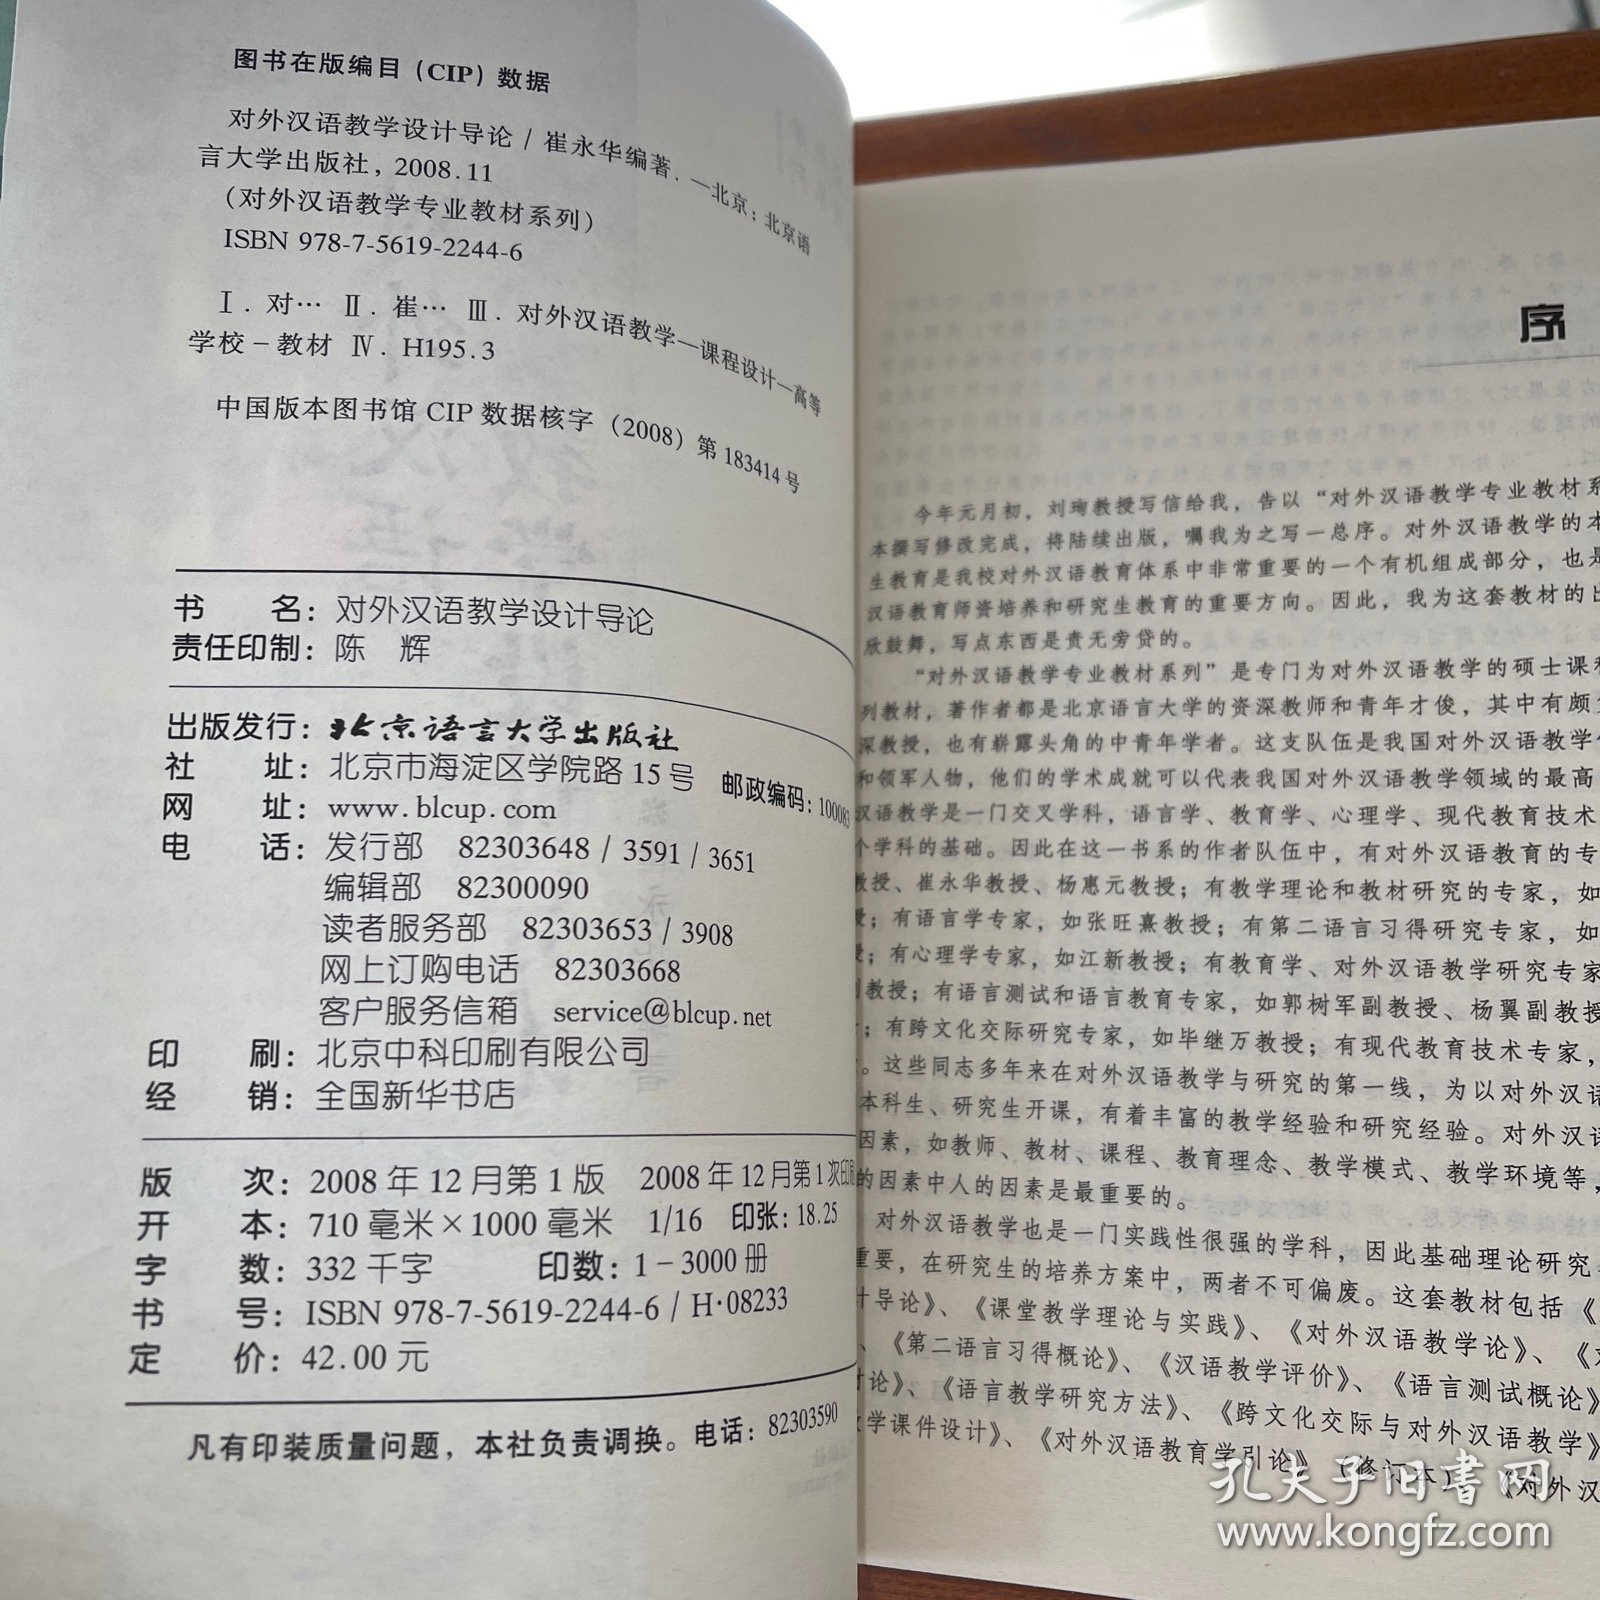 图书在版编目（CIP）数据
对外汉语教学设计导论 / 崔永华编著. —北京：北京语
言大学出版社，2008.11
（对外汉语教学专业教材系列）
ISBN 978-7-5619-2244-6
Ⅰ. 对… Ⅱ. 崔… Ⅲ. 对外汉语教学—课程设计—高等
学校－教材 Ⅳ. H195.3
中国版本图书馆 CIP 数据核字（2008）第 183414 号
书 名：对外汉语教学设计导论
责任印制：陈 辉
出版发行：北京语言大学出版社
社 址：北京市海淀区学院路 15 号 邮政编码：100083
网 址：www.blcup.com
电 话：发行部 82303648 / 3591 / 3651
编辑部 82300090
读者服务部 82303653 / 3908
网上订购电话 82303668
客户服务信箱 service@blcup.net
印 刷：北京中科印刷有限公司
经 销：全国新华书店
版 次：2008 年 12 月第 1 版 2008 年 12 月第 1 次印
开 本：710 毫米 × 1000 毫米 1/16 印张：18.25
字 数：332 千字 印数：1－3000 册
书 号：ISBN 978-7-5619-2244-6 / H·08233
定 价：42.00 元
凡有印装质量问题，本社负责调换。电话：82303590
序
今年元月初，刘珣教授写信给我，告以“对外汉语教学专业教材系
本撰写修改完成，将陆续出版，嘱我为之写一总序。对外汉语教学的本
生教育是我校对外汉语教育体系中非常重要的一个有机组成部分，也是
汉语教育师资培养和研究生教育的重要方向。因此，我为这套教材的出
欣鼓舞，写点东西是责无旁贷的。
“对外汉语教学专业教材系列”是专门为对外汉语教学的硕士课程
列教材，著作者都是北京语言大学的资深教师和青年才俊，其中有颇
深教授，也有崭露头角的中青年学者。这支队伍是我国对外汉语教学
和领军人物，他们的学术成就可以代表我国对外汉语教学领域的最高
汉语教学是一门交叉学科，语言学、教育学、心理学、现代教育技术
个学科的基础。因此在这一书系的作者队伍中，有对外汉语教育的专
教授、崔永华教授、杨惠元教授；有教学理论和教材研究的专家，如
；有语言学专家，如张旺熹教授；有第二语言习得研究专家，如
；有心理学专家，如江新教授；有教育学、对外汉语教学研究专家
教授；有语言测试和语言教育专家，如郭树军副教授、杨翼副教授
；有跨文化交际研究专家，如毕继万教授；有现代教育技术专家，
。这些同志多年来在对外汉语教学与研究的第一线，为以对外汉语
本科生、研究生开课，有着丰富的教学经验和研究经验。对外汉语
因素，如教师、教材、课程、教育理念、教学模式、教学环境等，
的因素中人的因素是最重要的。
对外汉语教学也是一门实践性很强的学科，因此基础理论研究
重要，在研究生的培养方案中，两者不可偏废。这套教材包括《
计导论》、《课堂教学理论与实践》、《对外汉语教学论》、《
、《第二语言习得概论》、《汉语教学评价》、《语言测试概论》
讨论》、《语言教学研究方法》、《跨文化交际与对外汉语教学》
教学课件设计》、《对外汉语教育学引论》（修订本）、《对外汉
孔夫子旧书网
www.kongfz.com